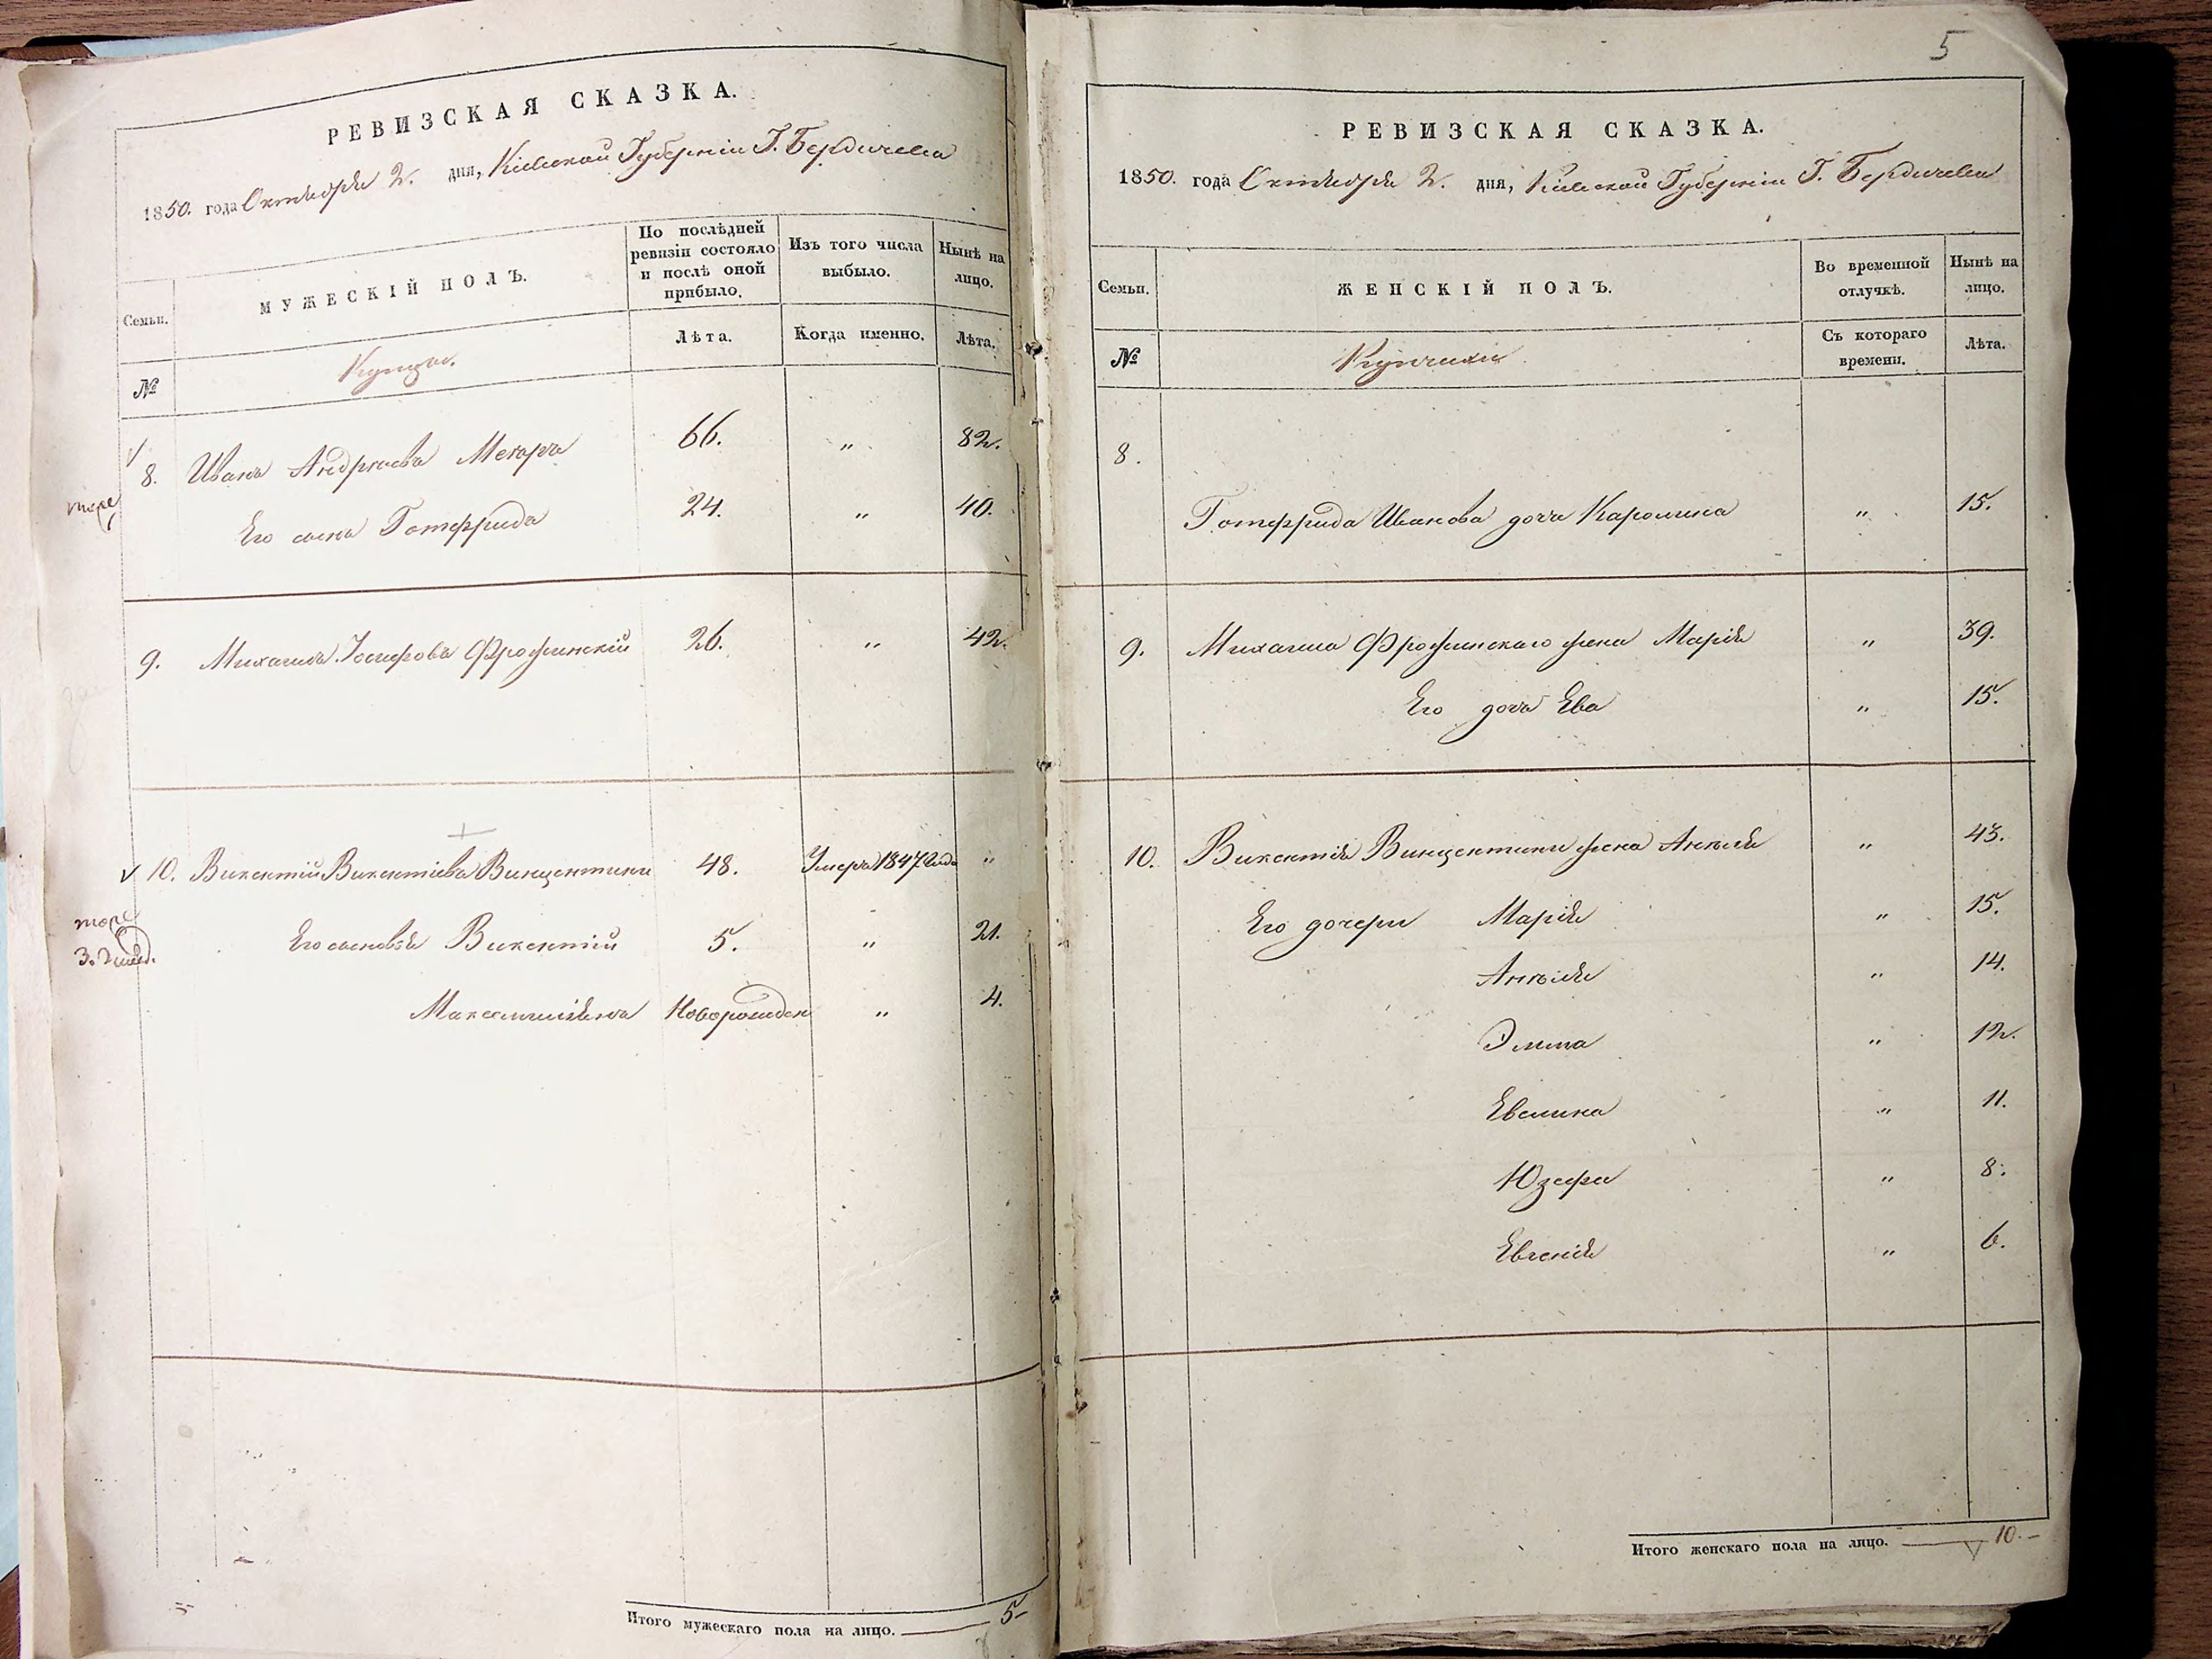 РЕВИЗСКАЯ СКАЗКА.
1850. года Октября 2. дня, Кіевской Губерніи Г. Бердичева
Семьи.
МУЖЕСКІЙ ПОЛЪ.
По послѣдней ревизіи состояло и послѣ оной прибыло.
Изъ того числа выбыло.
Нынѣ на лицо.
№
Купцы.
Лѣта.
Когда именно.
Лѣта.
8. Иванъ Андреевъ 66. „ 82.
Его сынъ Готфридъ 24. „ 40.
9. Михаилъ Іосифовъ Фрожинскій 26. „ 42.
10. Викентій Викентіевъ Винцентини 48. Умеръ 1847 года „
Его сыновья Викентій 5. „ 21.
Максимиліянъ Новорожден „ 4.
Итого мужескаго пола на лицо. 5-
5
РЕВИЗСКАЯ СКАЗКА.
1850. года Октября 2. дня, Кіевской Губерніи Г. Бердичева
Семьи.
ЖЕНСКІЙ ПОЛЪ.
Во временной отлучкѣ.
Нынѣ на лицо.
№
Купчихи
Съ котораго времени.
Лѣта.
8.
Готфрида Иванова дочь Каролина „ 15.
9. Михаила Фрожинскаго жена Марія „ 39.
Его дочь Ева „ 15.
10. Викентія Винцентини жена Анеля „ 43.
Его дочери Марія „ 15.
Анеля „ 14.
Элиза „ 12.
Евелина „ 11.
Юзефа „ 8.
Евгенія „ 6.
Итого женскаго пола на лицо. 10.-